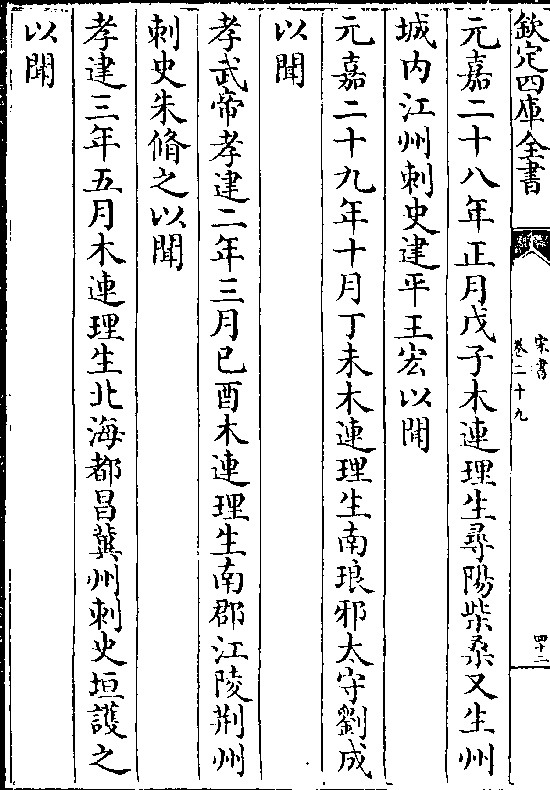 欽定四庫全書
宋書
卷二十九
四十二
元嘉二十八年正月戊子木連理生尋陽柴桑又生州
城内江州刺史建平王宏以聞
元嘉二十九年十月丁未木連理生南琅邪太守劉成
以聞
孝武帝孝建二年三月己酉木連理生南郡江陵荆州
刺史朱脩之以聞
孝建三年五月木連理生北海都昌冀州刺史垣護之
以聞